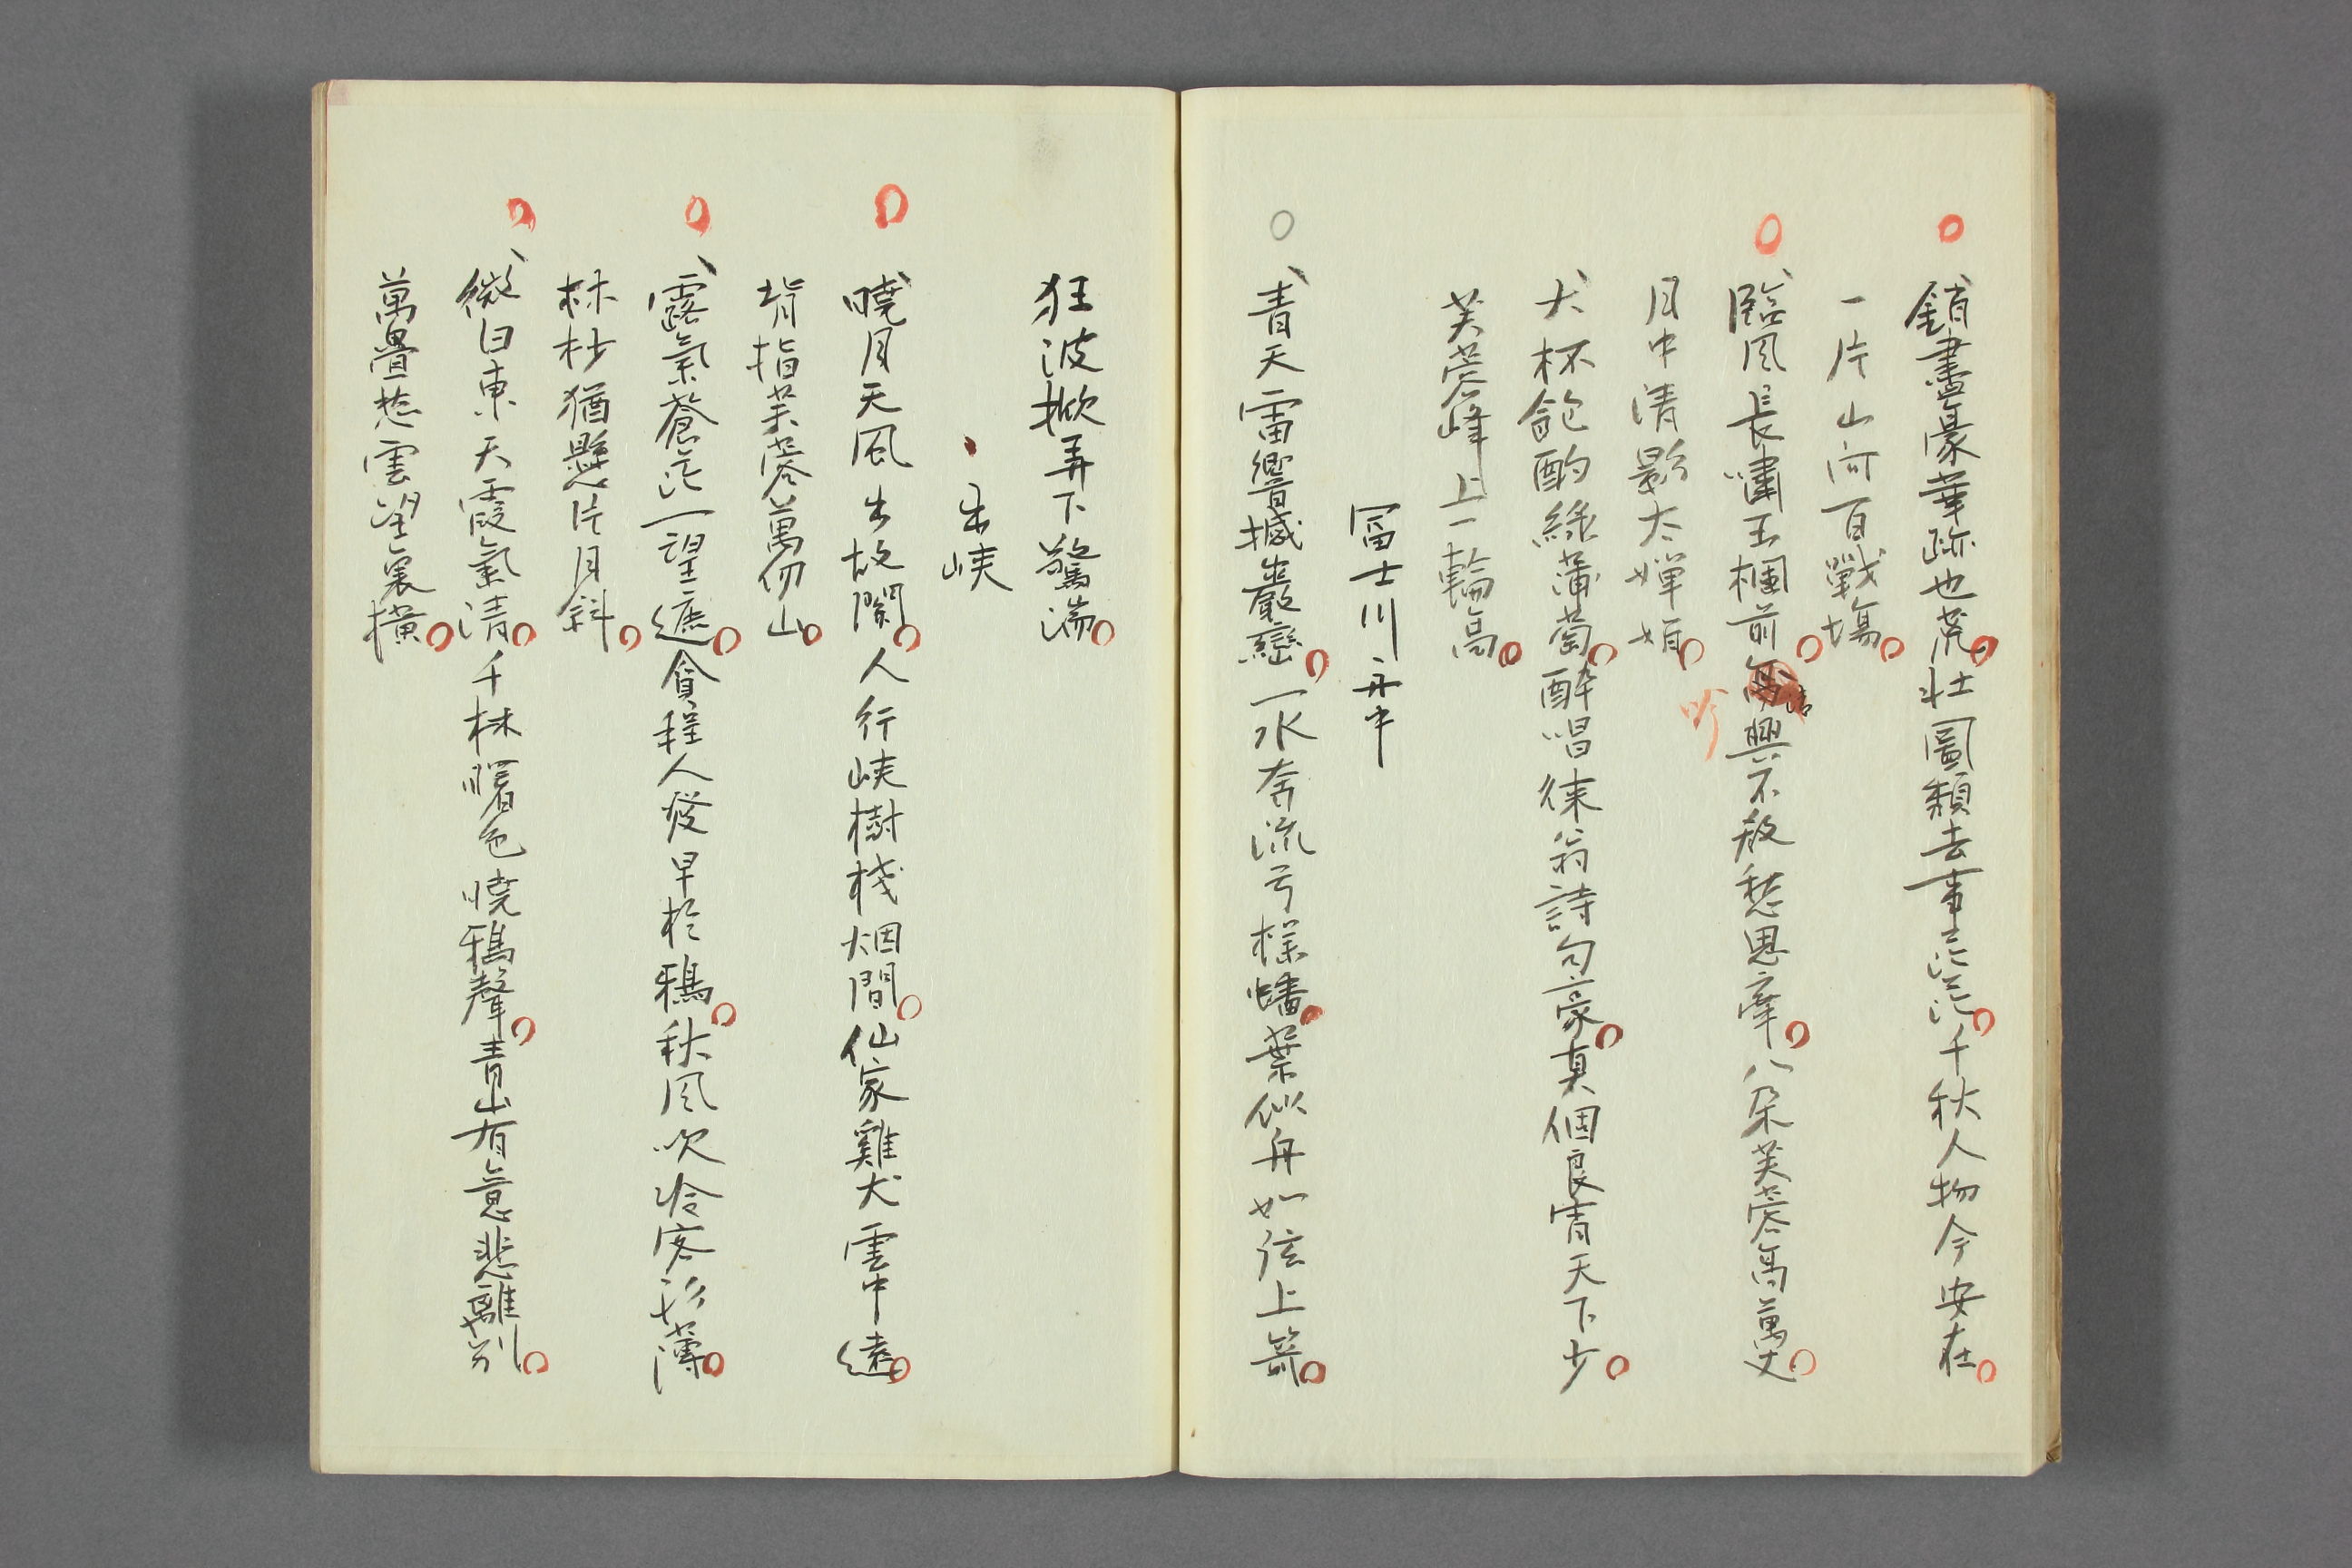 銷盡豪華跡也荒壯圖頽去事茫茫千秋人物今安在
一片山河百戰塲
臨風長嘯玉欄前
清
吟
興不敎愁思牽八朶芙蓉高萬丈
月中清影太嬋娟
大杯飽酌綠蒲萄酔唱徠翁詩句豪真個良宵天下少
芙蓉峰上一輪高
冨士川舟中
青天雷響撼巖巒一水奔流弓樣蟠葉似舟如弦上箭
狂波掀弄下驚湍
出峡
暁月天風出故関人行峡樹棧烟間仙家雞犬雲中遠
背指芙蓉萬仞山
露氣蒼茫一望遮貪程人發早於鴉秋風吹冷客衫薄
林杪猶懸片月斜
微白東天霞氣清千林曙色暁鴉聲青山有意悲離別
萬疊愁雲望裏横